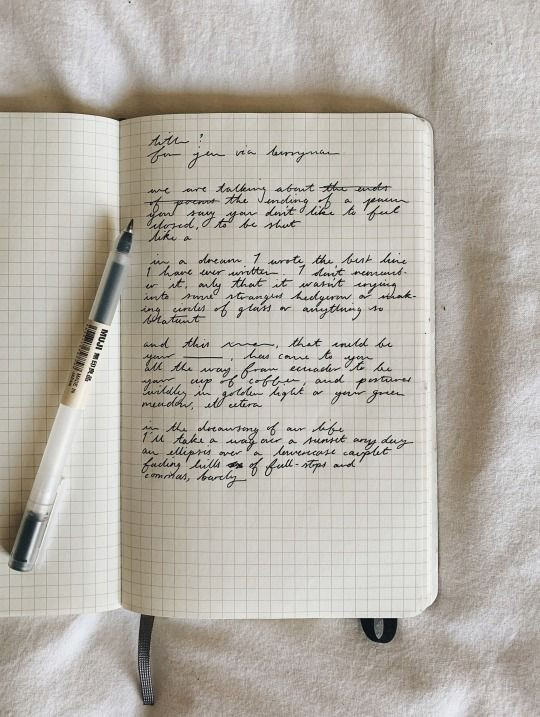 title ?
for jen via berryman
we are talking about the ends
of poems the ending of a poem
you say you don't like to feel
closed, to be shut
like a
in a dream I wrote the best line
I have ever written. I don't rememb-
er it, only that it wasn't crying
into some strangers hedgerow or
ing circles of glass or anything so
blatant
and this , that could be
your ____, has come to you
all the way from ecuador to be
your cup of coffee, and postures
wildly in golden light or your green
meadow, et cetera
in the dreamsong of our life
I'll take a wayover a sunset any day
an ellipses over a lowercase couplet
fading hills of full-stops and
commas, barely
MUJI 無印良品